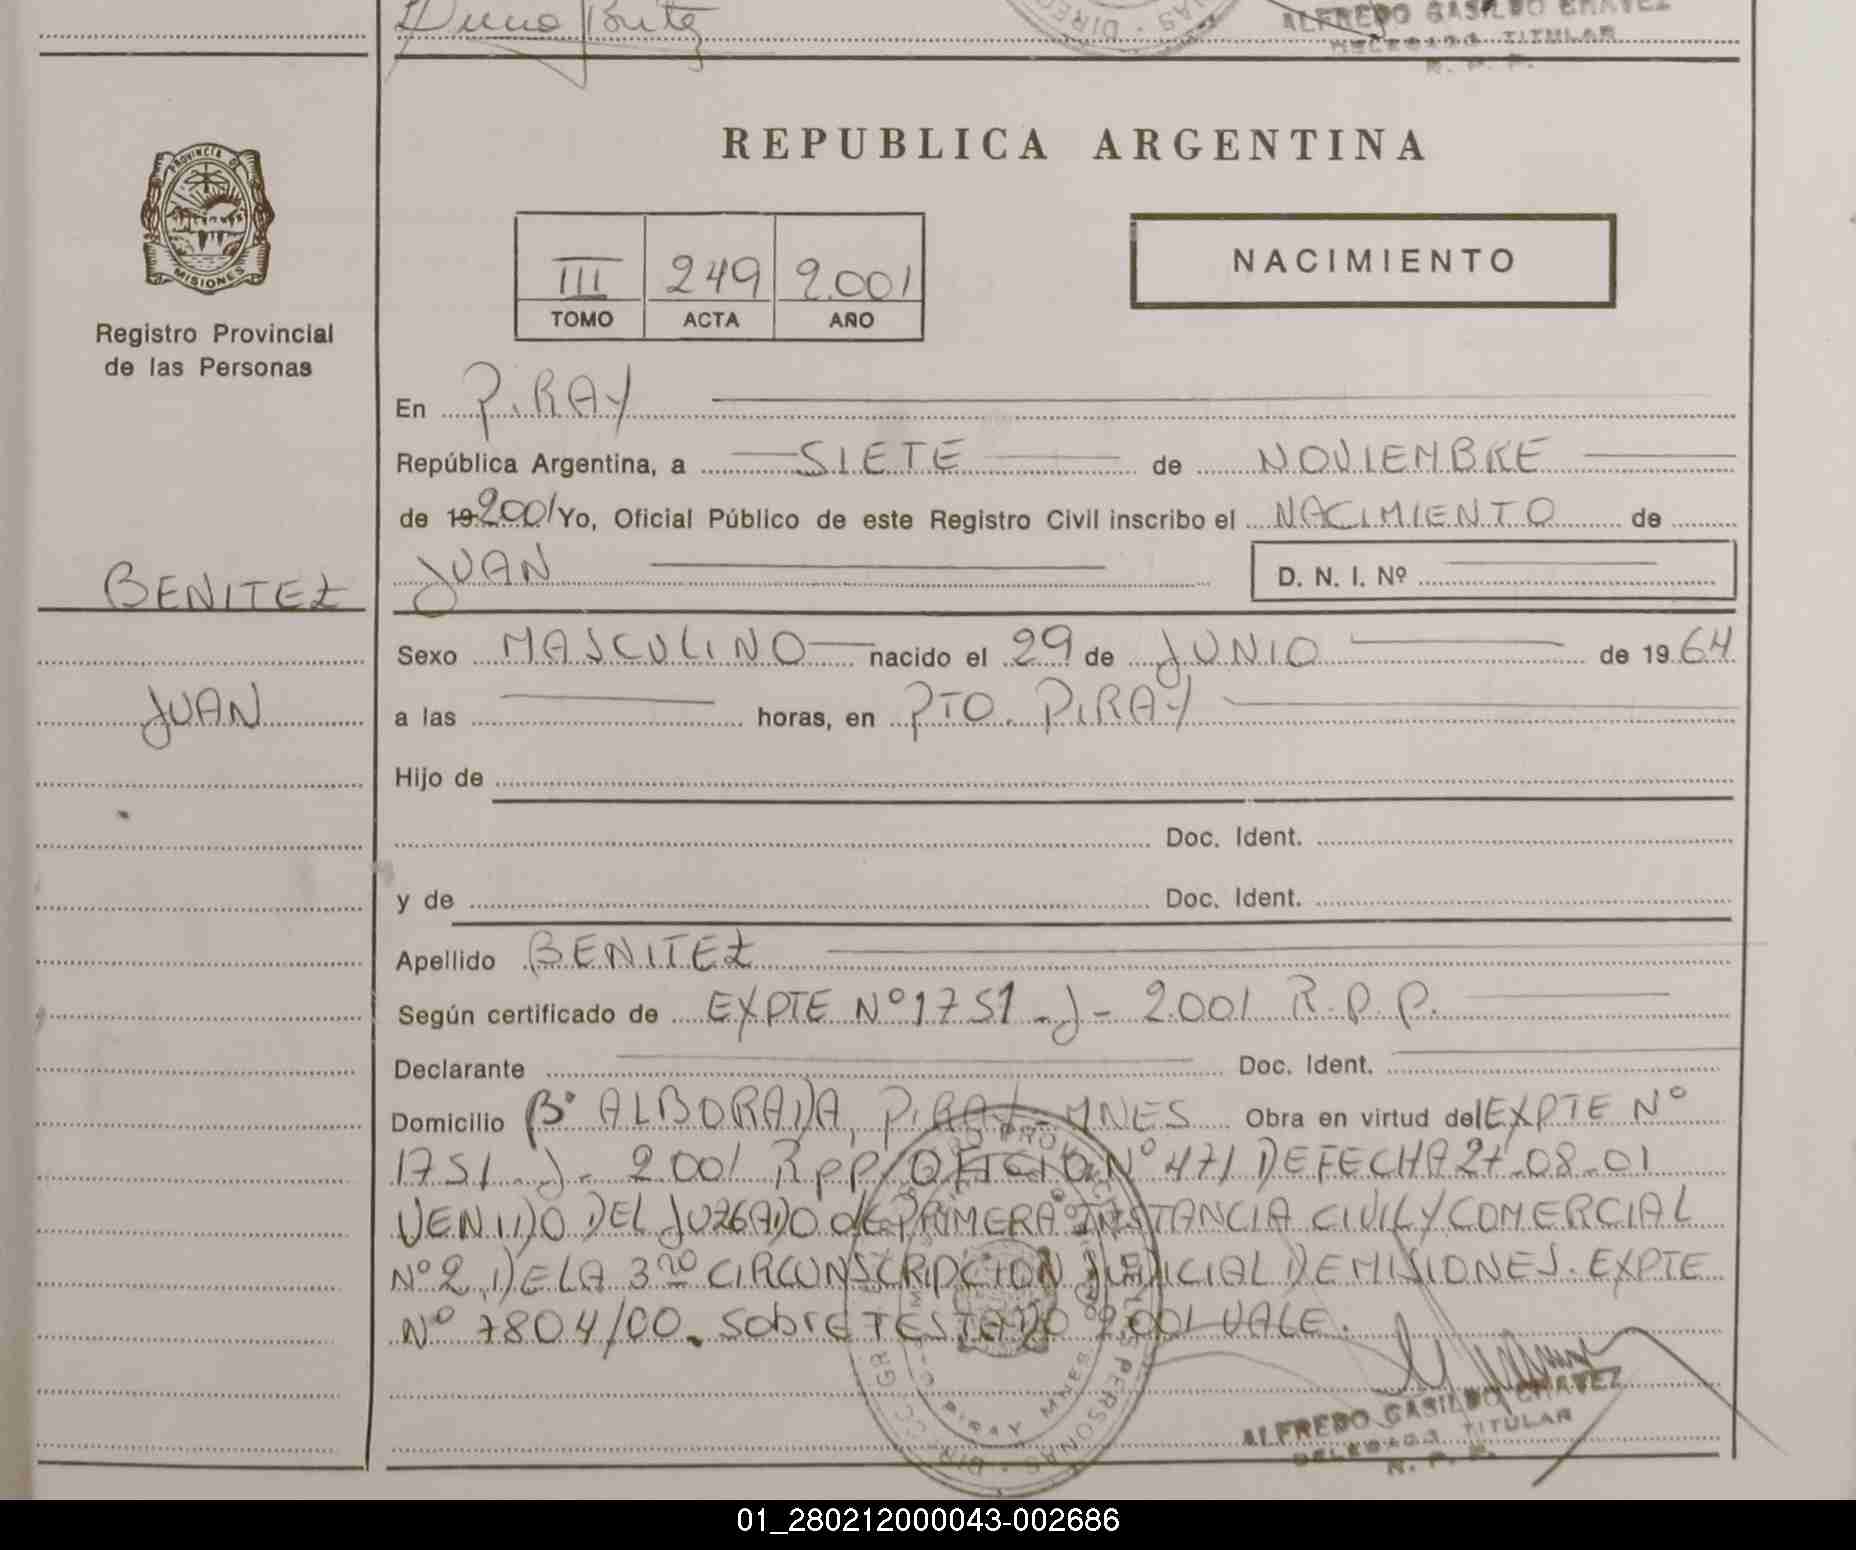 ALFREDO GASILDO CHAVEZ
DELEGADO TITULAR
R. P. P.
PROVINCIA DE
MISIONES
Registro Provincial
de las Personas
REPUBLICA ARGENTINA
III 249 2.001
TOMO ACTA AÑO
NACIMIENTO
En PIRAY
República Argentina, a SIETE de NOVIEMBRE
de 19 2001 Yo, Oficial Público de este Registro Civil inscribo el NACIMIENTO de
BENITEZ JUAN D. N. I. Nº
Sexo MASCULINO nacido el 29 de JUNIO de 19 64
JUAN a las horas, en PTO. PIRAY
Hijo de
Doc. Ident.
y de Doc. Ident.
Apellido BENITEZ
Según certificado de EXPTE Nº 1751 - J - 2.001 R.P.P.
Declarante Doc. Ident.
Domicilio Bº ALBORADA, PIRAY - MNES Obra en virtud del EXPTE Nº
1751 - J - 2.001 RPP/ OFICIO Nº 471 DE FECHA 27-08-01
VENIDO DEL JUZGADO de PRIMERA INSTANCIA CIVIL Y COMERCIAL
Nº 2, DE LA 3ra CIRCUNSCRIPCION JUDICIAL DE MISIONES. EXPTE
Nº 7804/00. SobrE TESTADO 2.001 VALE.
ALFREDO GASILDO CHAVEZ
DELEGADO TITULAR
R. P. P.
01_280212000043-002686